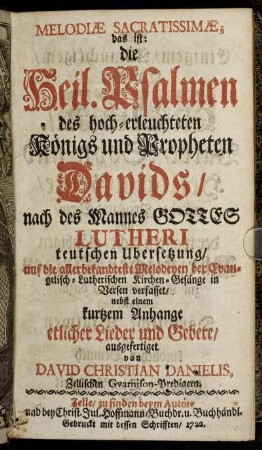 MELODIÆ SACRATISSIMÆ,
das ist:
die
Heil. Psalmen
des hoch-erleuchteten
Königs und Propheten
Davids/
nach des Mannes GOTTES
LUTHERI
teutschen Ubersetzung/
auf die allerbekandteste Melodeyen der Evan-
gelisch-Lutherischen Kirchen-Gesänge in
Versen verfasset/
nebst einem
kurtzem Anhange
etlicher Lieder und Gebete/
ausgefertiget
von
DAVID CHRISTIAN DANIELIS,
Zellischen Gvarnison-Predigern.
Zelle/ zu finden beym Autore
und bey Christ. Jul. Hoffmann/ Buchdr. u. Buchhändl.
Gedruckt mit dessen Schrifften/ 1722.